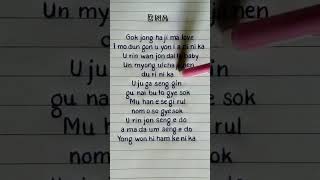 Gok jong ha ji ma love
I mo dun gon u yon i a ni ni ka
U rin wan jon dal la baby
Un myong ul cha nen
du ri ni ka
U ju ga seng gin
gu nal bu to gye sok
Mu han e se gi rul
nom o so gye sok
U rin jon seng e do
a ma da um seng e do
Yong won hi ham ke ni ka